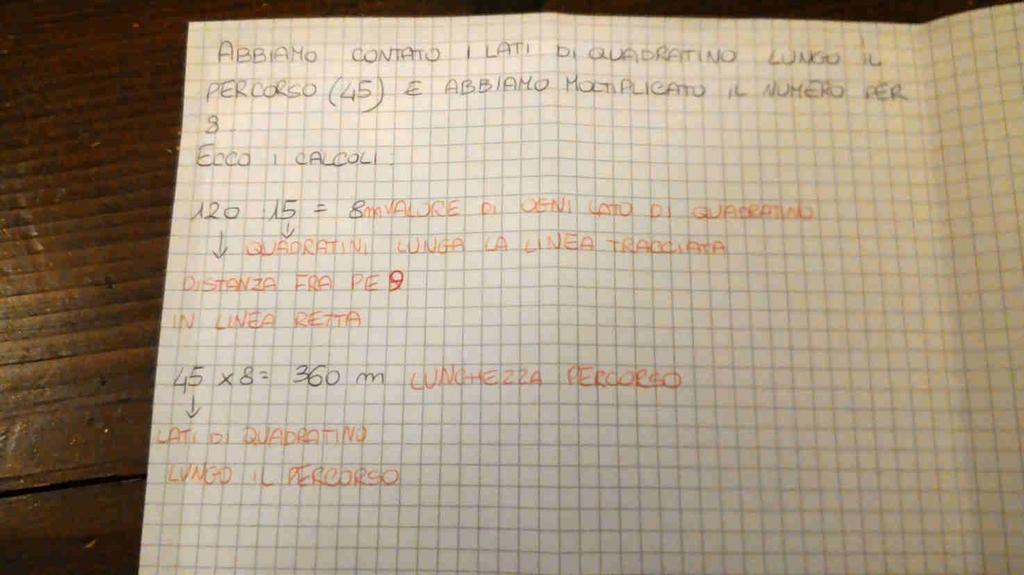 ABBIAMO CONTATO I LATI DI QUADRATINO LUNGO IL
PERCORSO (45) E ABBIAMO MOLTIPLICATO IL NUMERO PER
8.
ECCO I CALCOLI:
120 : 15 = 8m VALORE DI OGNI LATO DI QUADRATINO
↓ ↓ QUADRATINI LUNGA LA LINEA TRACCIATA
DISTANZA FRA P E Q
IN LINEA RETTA
45 x 8 = 360 m LUNGHEZZA PERCORSO
↓
LATI DI QUADRATINO
LUNGO IL PERCORSO